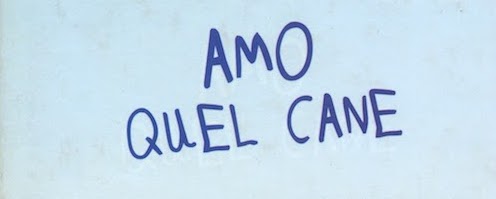 AMO
QUEL CANE